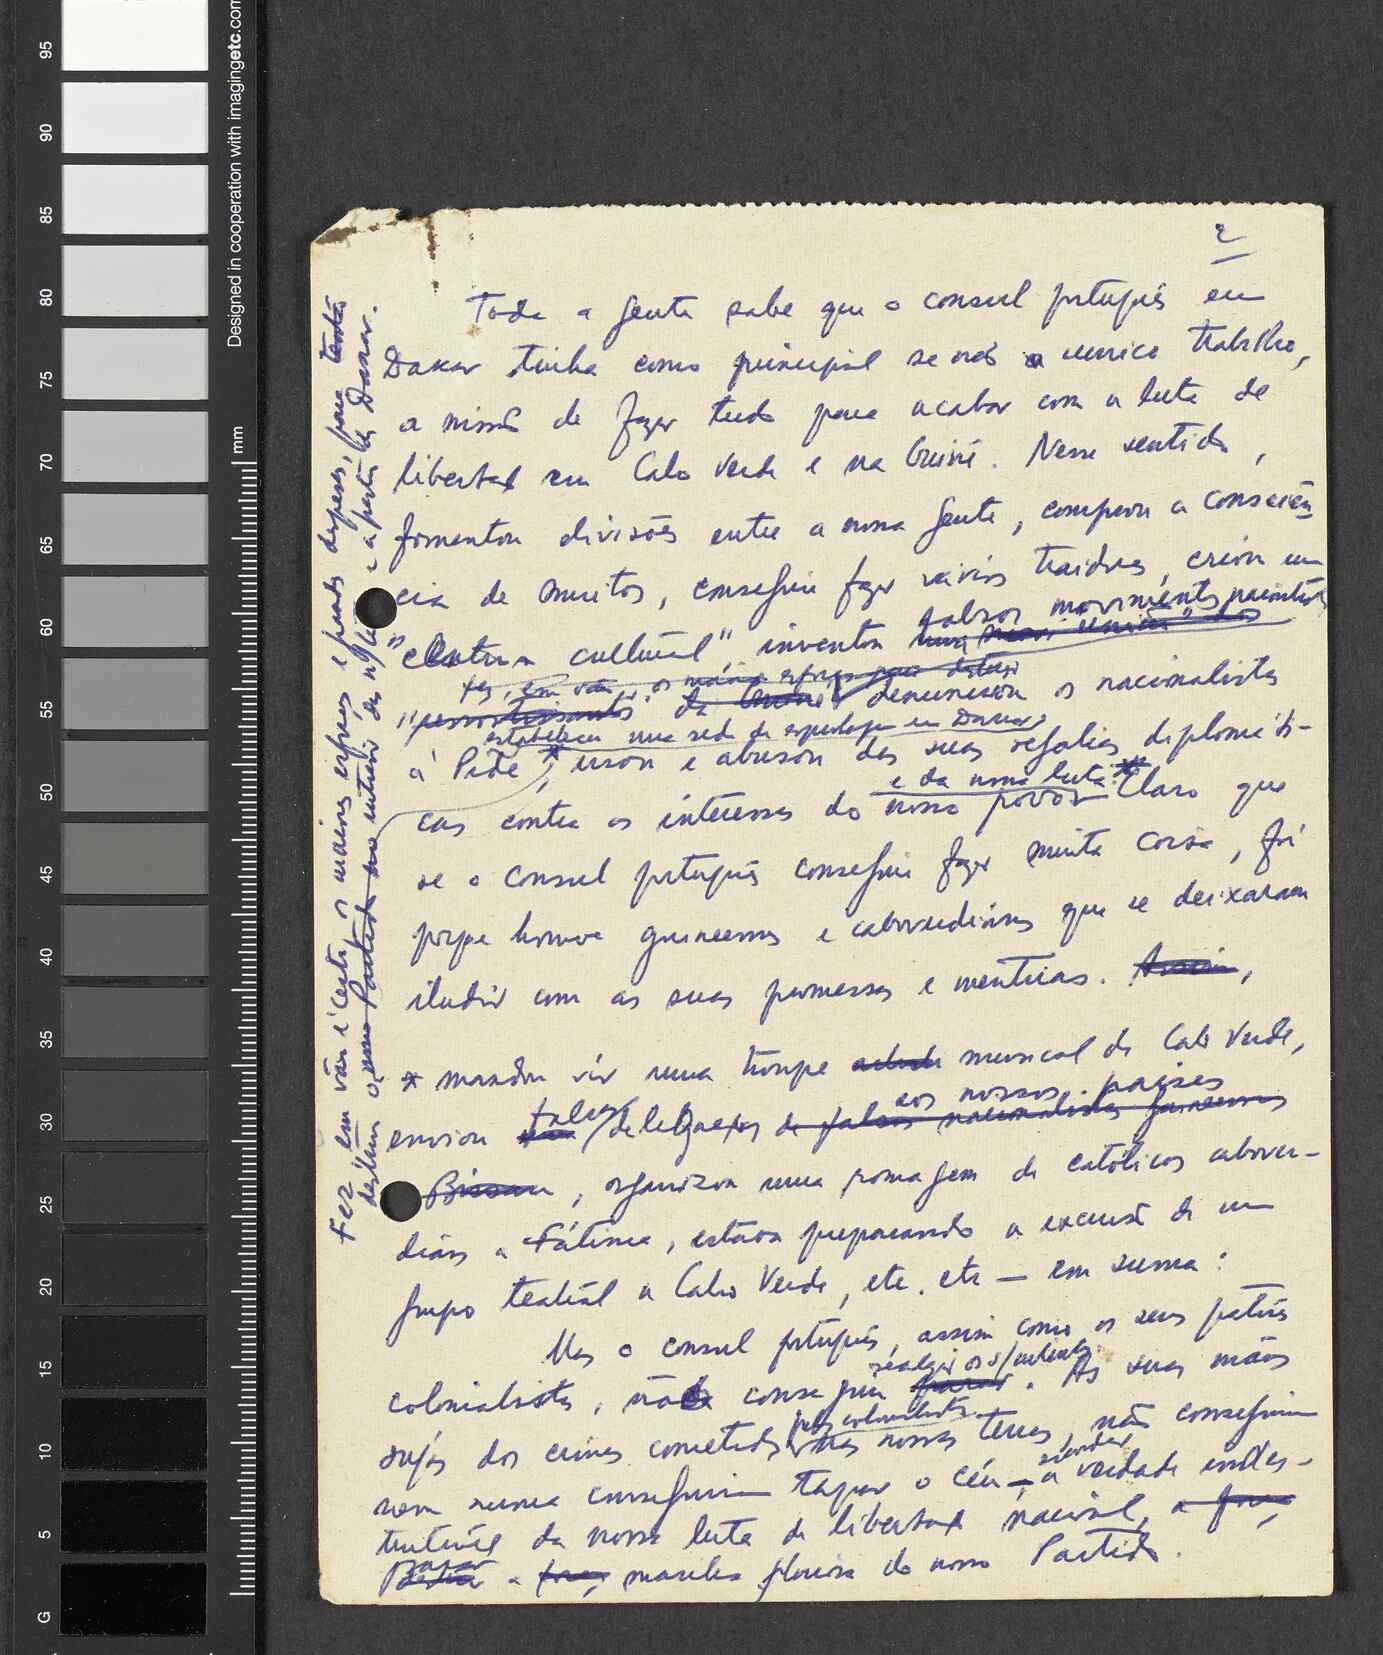 2
Toda a gente sabe que o consul português em
Dakar tinha como principal se não o unico trabalho,
a missão de fazer tudo para acabar com a luta de
libertação em Cabo Verde e na Guiné. Nesse sentido,
fomentou divisões entre a nossa gente, comprou a consciên
cia de muitos, conseguiu fazer vários traidores, criou um
falsos movimentos
"Centro cultural" inventou
fez, em vão, os maiores esforços para destruir
denunciou os nacionalistas
estabeleceu uma rede de espionagem em Dakar
à Pide, * usou e abusou das suas regalias diplomáti-
e da nossa luta. *
cas contra os interesses do nosso povo. Claro que
se o consul português conseguiu fazer muita coisa, foi
porque houve guineenses e caboverdianos que se deixaram
iludir com as suas promessas e mentiras. Assim,
* mandou vir uma troupe musical de Cabo Verde,
aos nossos países
enviou falsas delegações de falsos nacionalistas guineenses
Bissau, organizou uma romagem de católicos cabover-
dianos a Fátima, estava preparando a excursão de um
grupo teatral a Cabo Verde, etc. etc — em suma:
Mas o consul português, assim como os seus patrões
realizar os s/intentos
colonialistas, não conseguiu parar. As suas mãos
pelos colonialistas
sujas dos crimes cometidos nas nossas terras, não conseguiram
esconder
nem nunca conseguirão tapar o céu — a verdade indes-
trutível da nossa luta de libertação nacional, a força,
parar
a força, marcha gloriosa do nosso Partido.
Fez em vão é certo os maiores esforços e grandes despesas, para
destruir o nosso Partido no interior das n/ e a partir de Dakar.
95
90
85
80
75
70
65
60
55
50
45
40
35
30
25
20
15
10
5
G
mm
Designed in cooperation with imagingetc.com